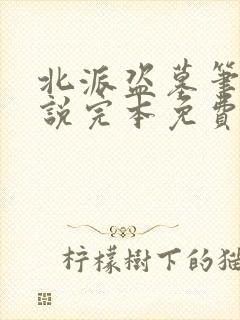 北派盗墓筆
說完本免費
柠檬樹下的猫